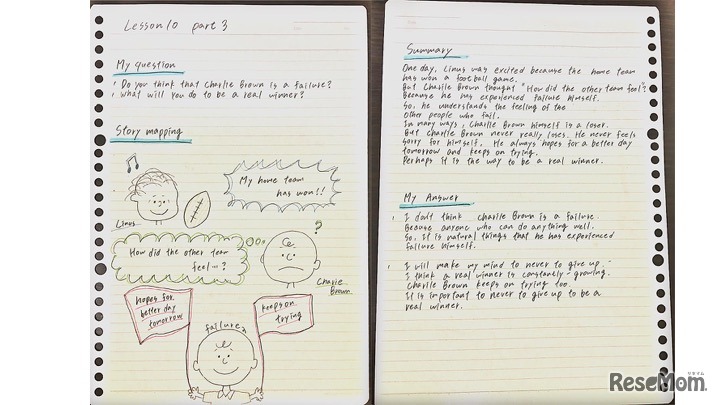 Lesson 10 part 3
My question
Do you think that Charlie Brown is a failure?
What will you do to be a real winner?
Story mapping
My home team
has won!!
Linus
How did the other team
feel...?
?
Charlie
Brown
hopes for
better day
tomorrow
keeps on
trying
failure?
Summary
One day, Linus was excited because the home team
has won a football game.
But Charlie Brown thought "How did the other team feel?"
Because he has experienced failure himself.
So, he understands the feeling of the
other people who fail.
In many ways, Charlie Brown himself is a loser.
But Charlie Brown never really loses. He never feels
sorry for himself. He always hopes for a better day
tomorrow and keeps on trying.
Perhaps it is the way to be a real winner.
My Answer
I don't think Charlie Brown is a failure.
Because anyone who can do anything well.
So, It is natural things that he has experienced
failure himself.
I will make my mind to never to give up.
I think a real winner is constanely growing.
Charlie Brown keeps on trying too.
It is important to never to give up to be a
real winner.
リセマム
ReseMom.